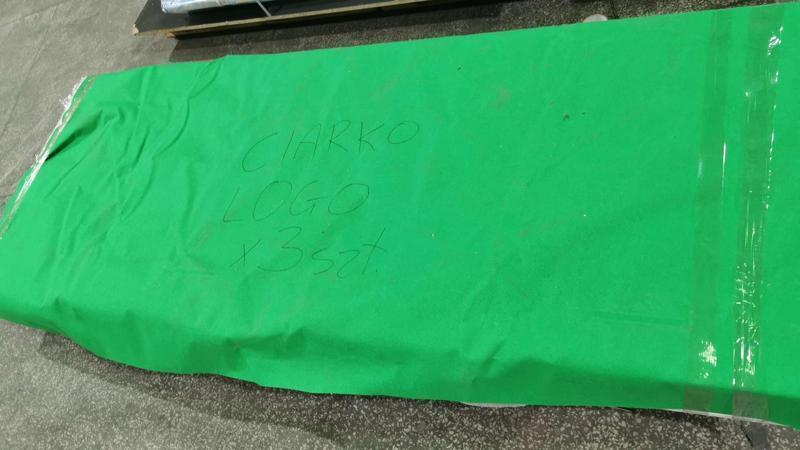 CIARKO
LOGO
x 3 szt.